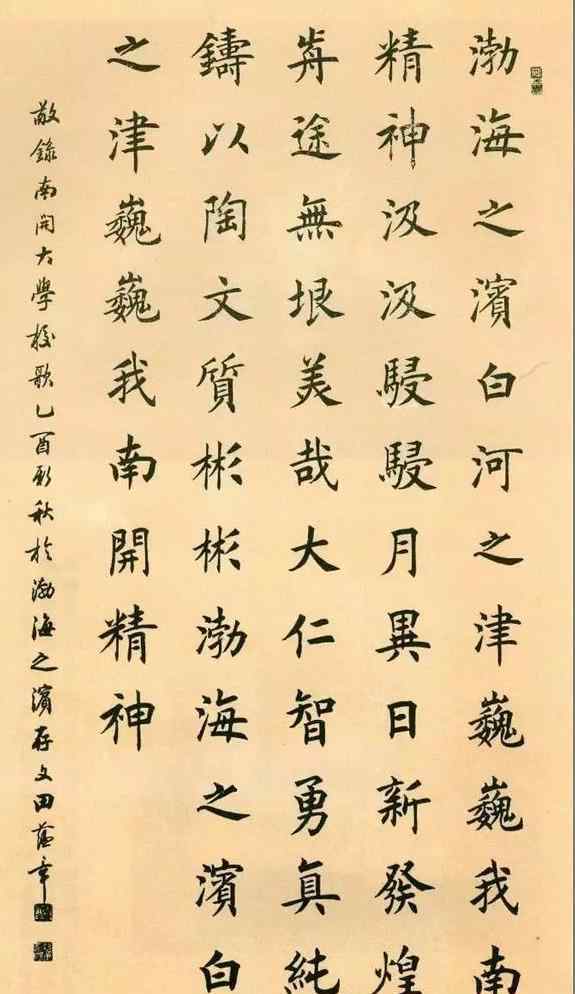 渤海之濱白河之津巍巍我南
精神汲汲駸駸月異日新發煌
歬途無垠美哉大仁智勇真純
鑄以陶文質彬彬渤海之濱白
之津巍巍我南開精神
敬錄南開大學校歌乙酉新秋於渤海之濱存文田蘊章